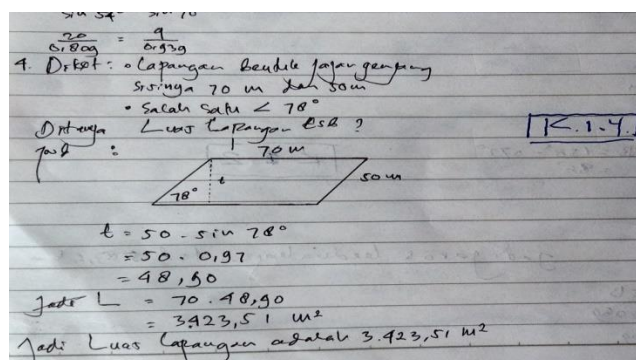 20 / 0,809 = 9 / 0,939
4. Diket : • Lapangan Bentuk jajar genjang
sisinya 70 m dan 50m
• salah satu < 78°
Ditanya Luas Lapangan tsb ?
K.1.4.
Jawab :
70 m
t
50 m
78°
t = 50 . sin 78°
= 50 . 0,97
= 48,90
Jadi L = 70 . 48,90
= 3423,51 m²
Jadi Luas Lapangan adalah 3.423,51 m²